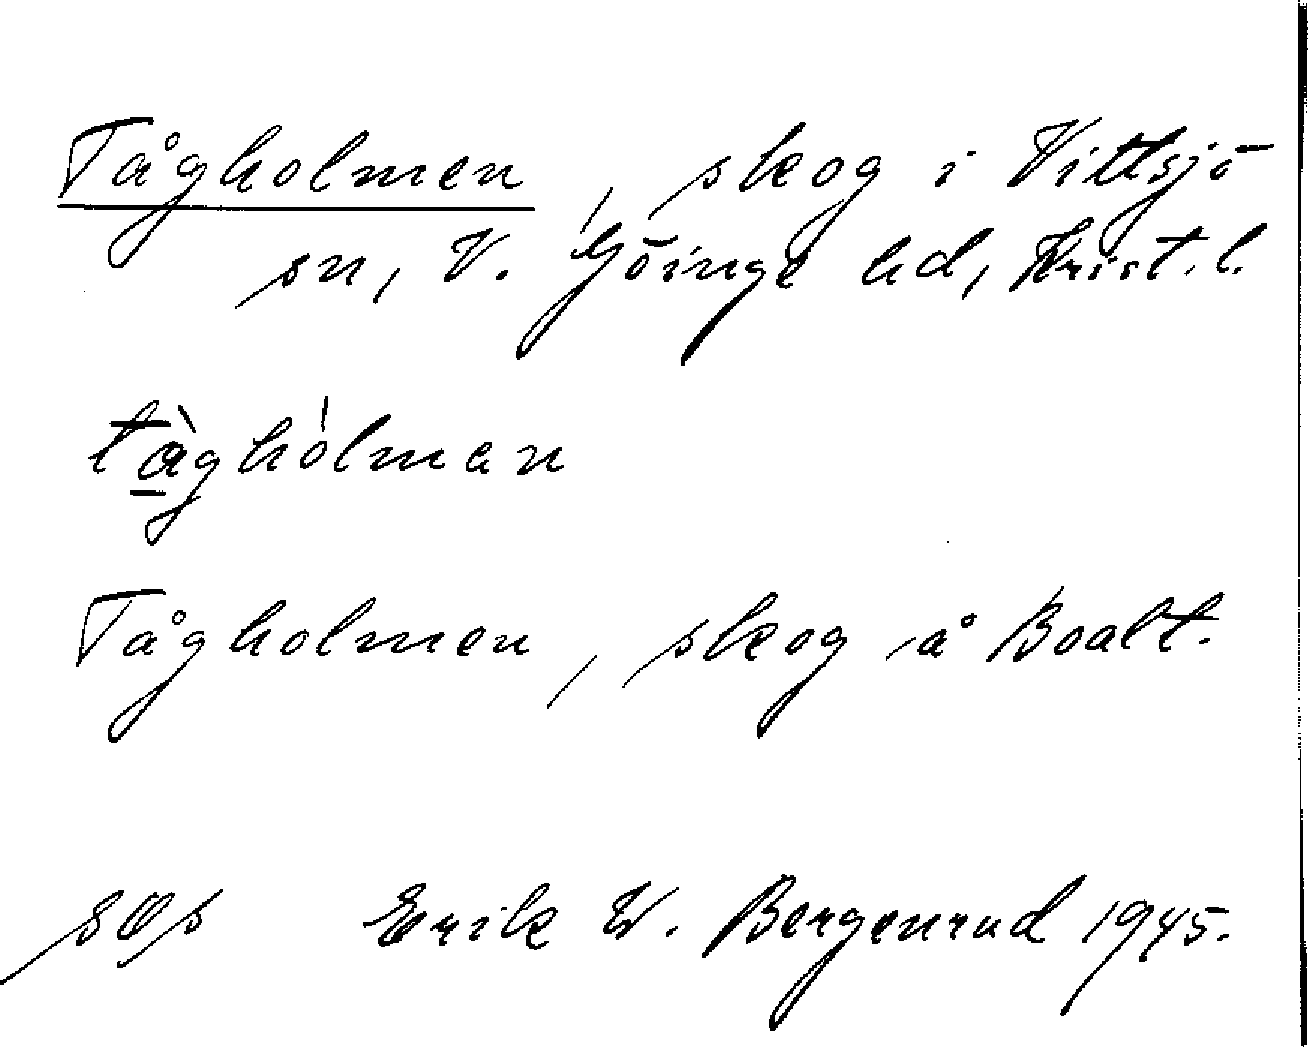 Tågholmen, skog i Vittsjö
sn, V. Göinge hd, Krist. l.
tàghólman
Tågholmen, skog å Boalt.
Erik W. Bergenrud 1945.